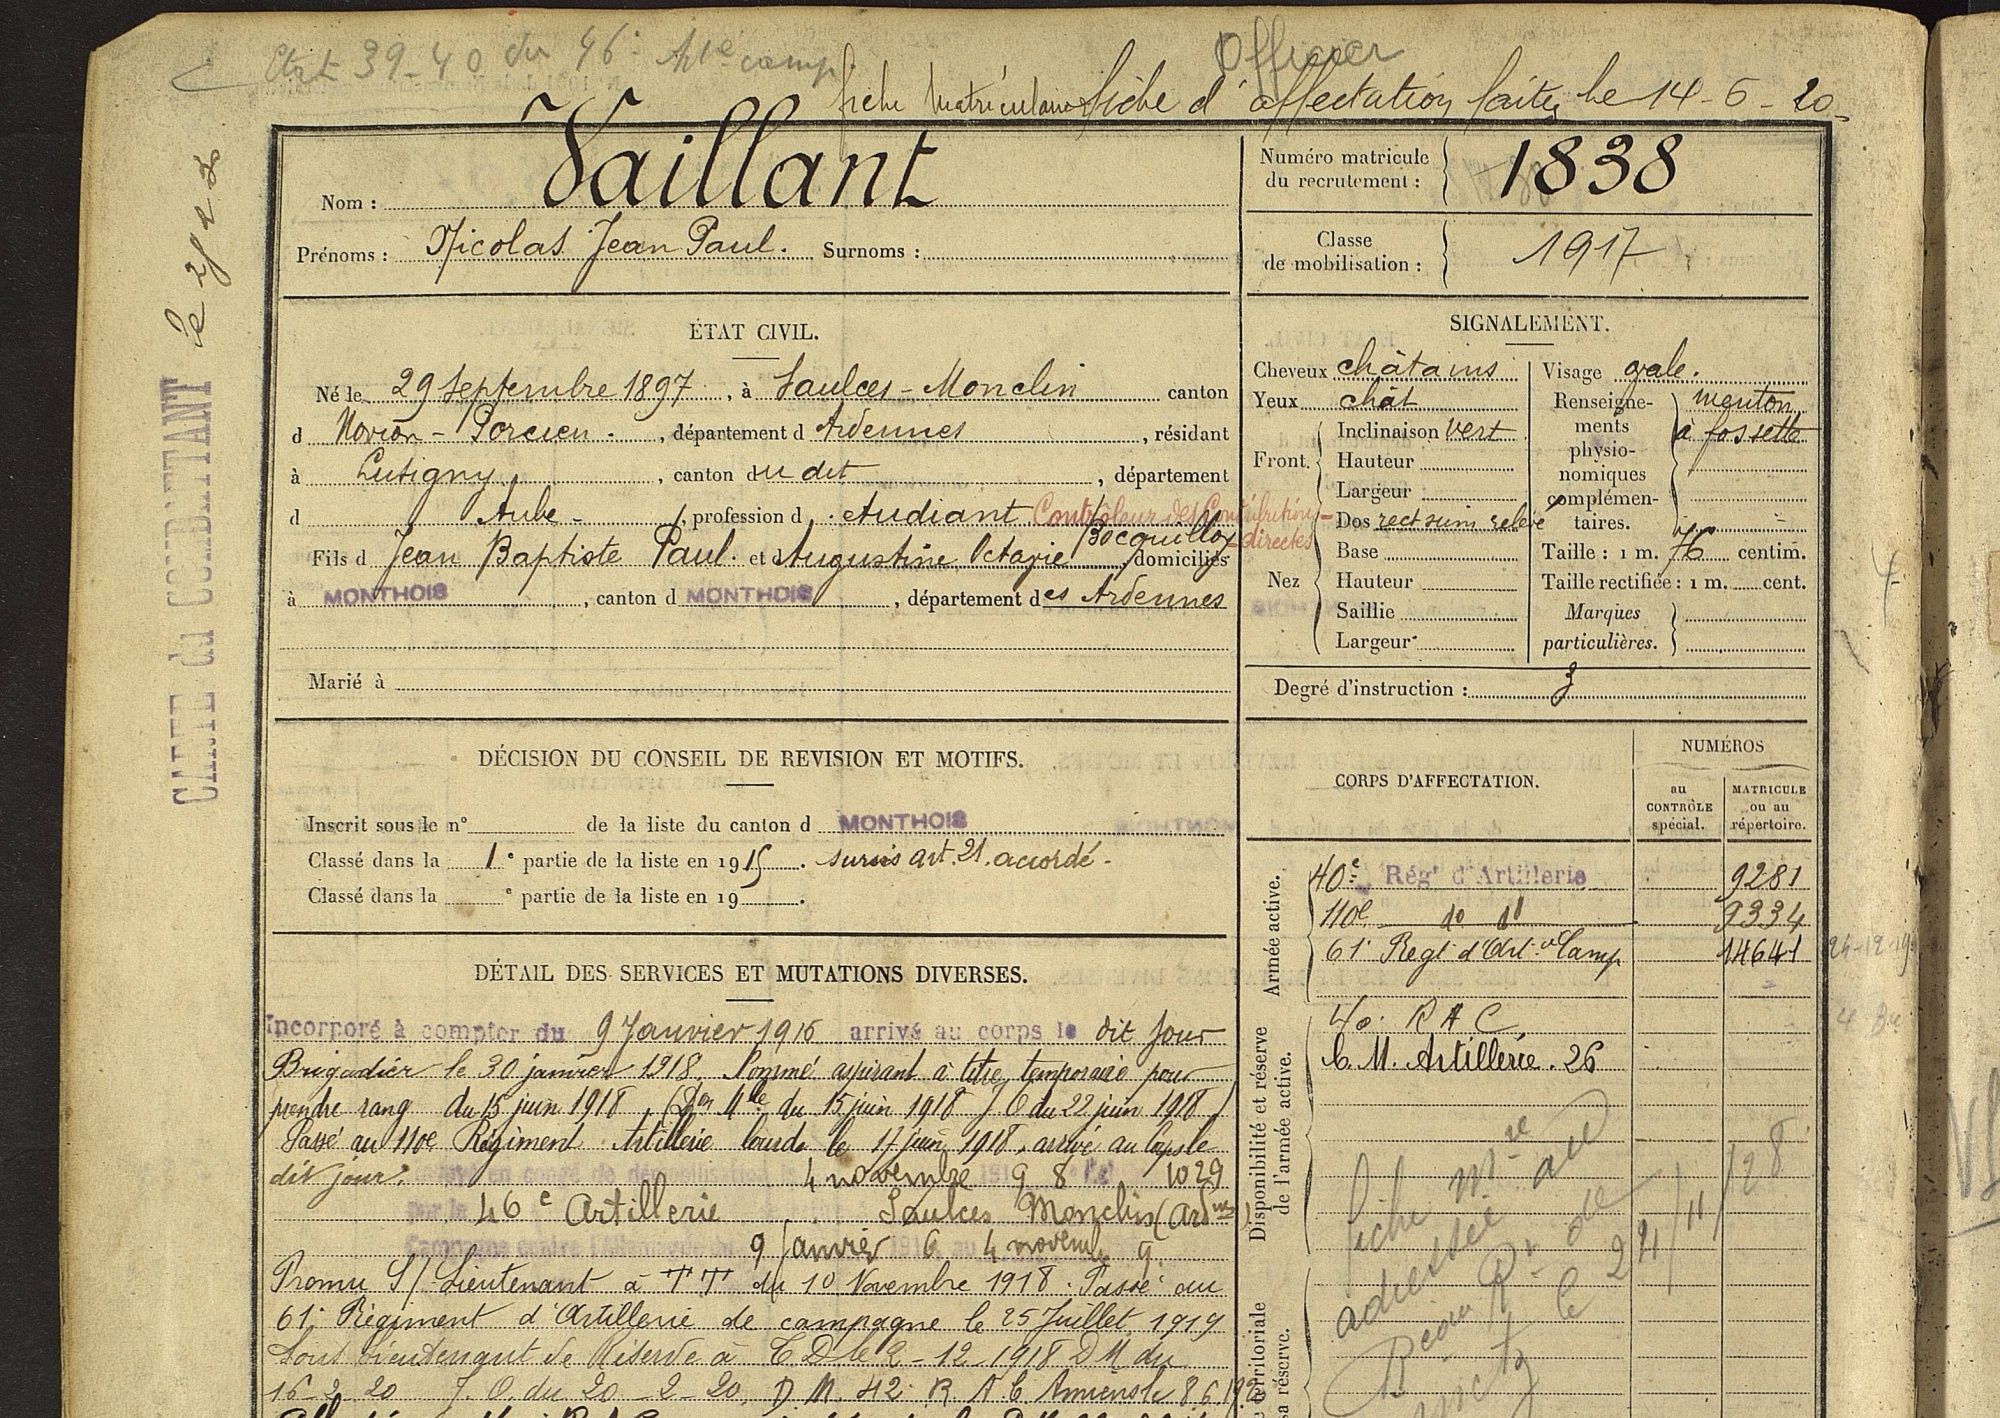 Etat 39-40 du 46e Art camp
Officier
fiche Matriculaire fiche d'affectation faites le 14-6-20
CARTE du COMBATTANT le
Nom : Vaillant
Prénoms : Nicolas Jean Paul. Surnoms :
Numéro matricule
du recrutement : 1838
Classe
de mobilisation : 1917
ÉTAT CIVIL.
Né le 29 Septembre 1897, à Saulces-Monclin canton
d Novion-Porcien, département d Ardennes, résidant
à Lusigny, canton du dit, département
d Aube, profession d Etudiant Controleur des Contributions directes
Fils d Jean Baptiste Paul et d Augustine Octavie Bocquillon domiciliés
à MONTHOIS, canton d MONTHOIS, département des Ardennes
Marié à
SIGNALEMENT.
Cheveux châtains
Yeux chât
Front. Inclinaison vert
Hauteur
Largeur
Nez Dos rect sin relevé
Base
Hauteur
Saillie
Largeur
Visage ovale.
Renseigne-
ments
physio-
nomiques
complémen-
taires.
menton
à fossette
Taille : 1 m. 76 centim.
Taille rectifiée : 1 m. cent.
Marques
particulières.
Degré d'instruction : 3
DÉCISION DU CONSEIL DE REVISION ET MOTIFS.
Inscrit sous le n° de la liste du canton d MONTHOIS
Classé dans la 1e partie de la liste en 1915. sursis art. 21. accordé.
Classé dans la e partie de la liste en 19 .
CORPS D'AFFECTATION.
NUMÉROS
au
CONTRÔLE
spécial.
MATRICULE
ou au
répertoire.
Armée active.
40e Régt d'Artillerie 9281
110e do do 9334
61e Regt d'Art. Camp 14641
Disponibilité et réserve
de l'armée active.
40e R A C.
C. M. Artillerie. 26
fiche Mre au
adressée
de
le 24/11/28
territoriale
sa réserve.
DÉTAIL DES SERVICES ET MUTATIONS DIVERSES.
Incorporé à compter du 9 Janvier 1916 arrivé au corps le dit jour
Brigadier le 30 janvier 1918. Nommé aspirant à titre temporaire pour
prendre rang du 15 juin 1918 (Don Mlle du 15 juin 1918 J O du 22 juin 1918)
Passé au 110e Régiment Artillerie lourde le 17 juin 1918, arrivé au corps le
dit jour. 4 novembre 9 8 1029
46e Artillerie Saulces Monclin (Ardnes)
9 Janvier 6 4 novembre 9
Promu S/Lieutenant à TT du 10 Novembre 1918. Passé au
61e Régiment d'Artillerie de campagne le 25 Juillet 1919
Sous Lieutenant de Réserve à T D le 2-12-1918 D M du
16-2-20 J. O. du 20-2-20. D M. 42e R A C Amiens le 8 6 1920